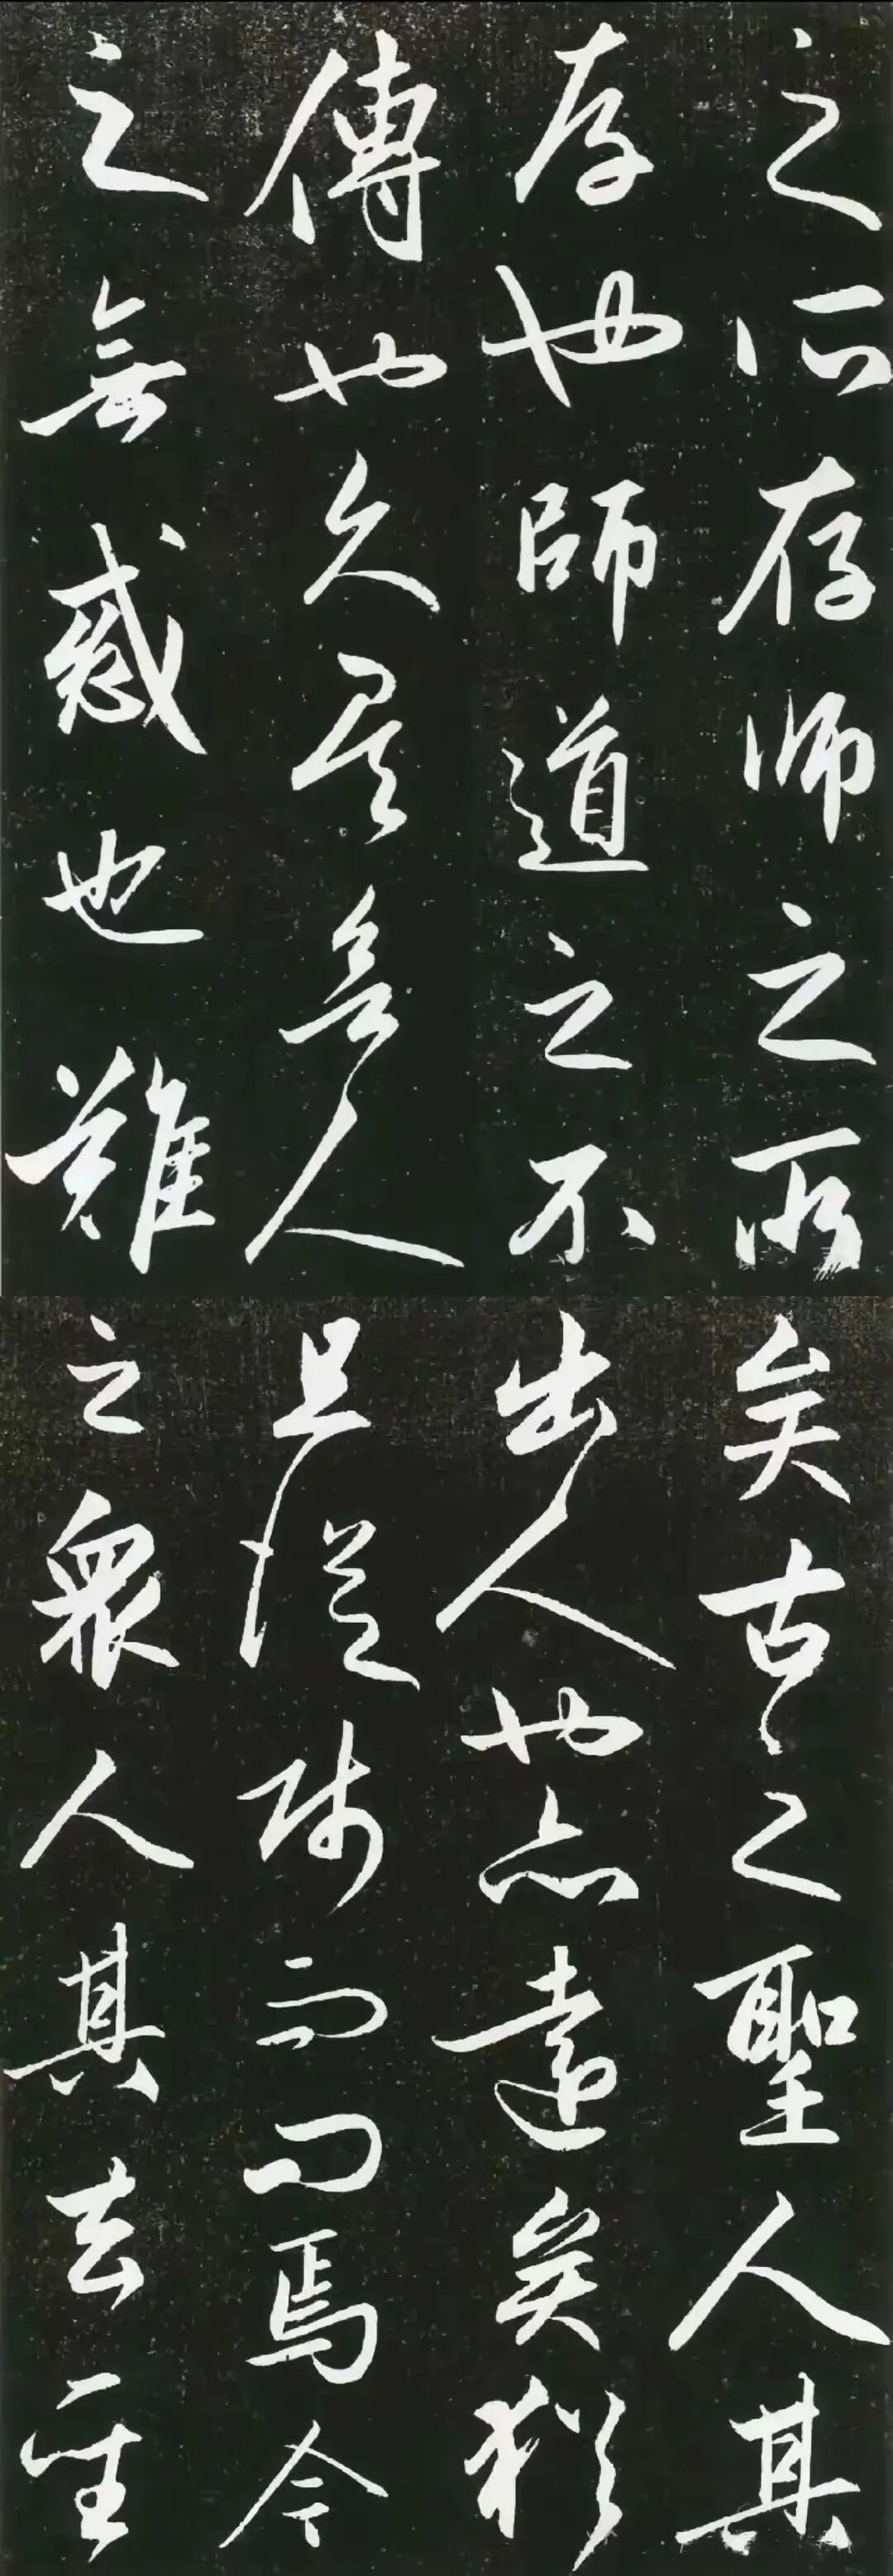 之所存师之所
存也師道之不
傳也久矣無人
之無惑也難
矣古之聖人其
出人也亦遠矣猶
且從師而問焉今
之眾人其去聖